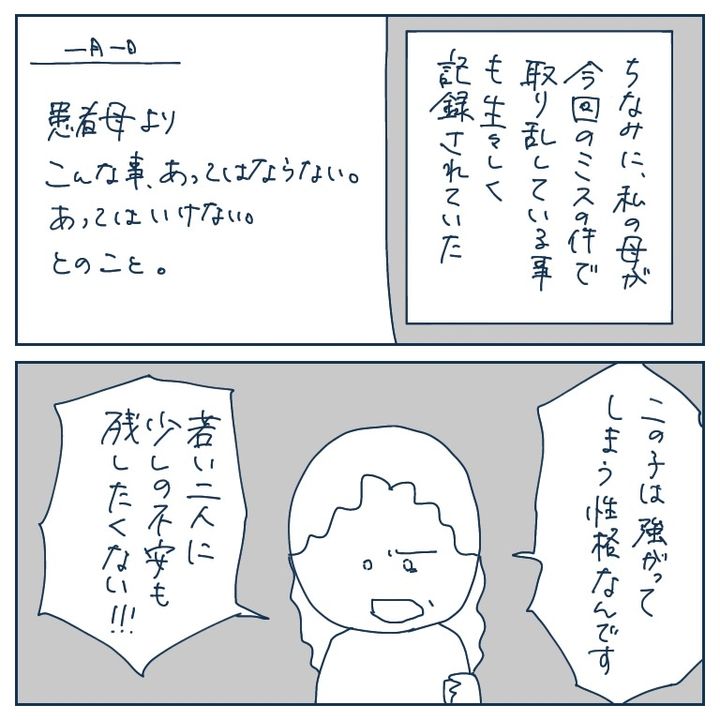 ちなみに、私の母が
今回のミスの件で
取り乱している事
も生々しく
記録されていた
一月一日
患者母より
こんな事、あってはならない。
あってはいけない。
とのこと。
この子は強がって
しまう性格なんです
若い二人に
少しの不安も
残したくない!!!